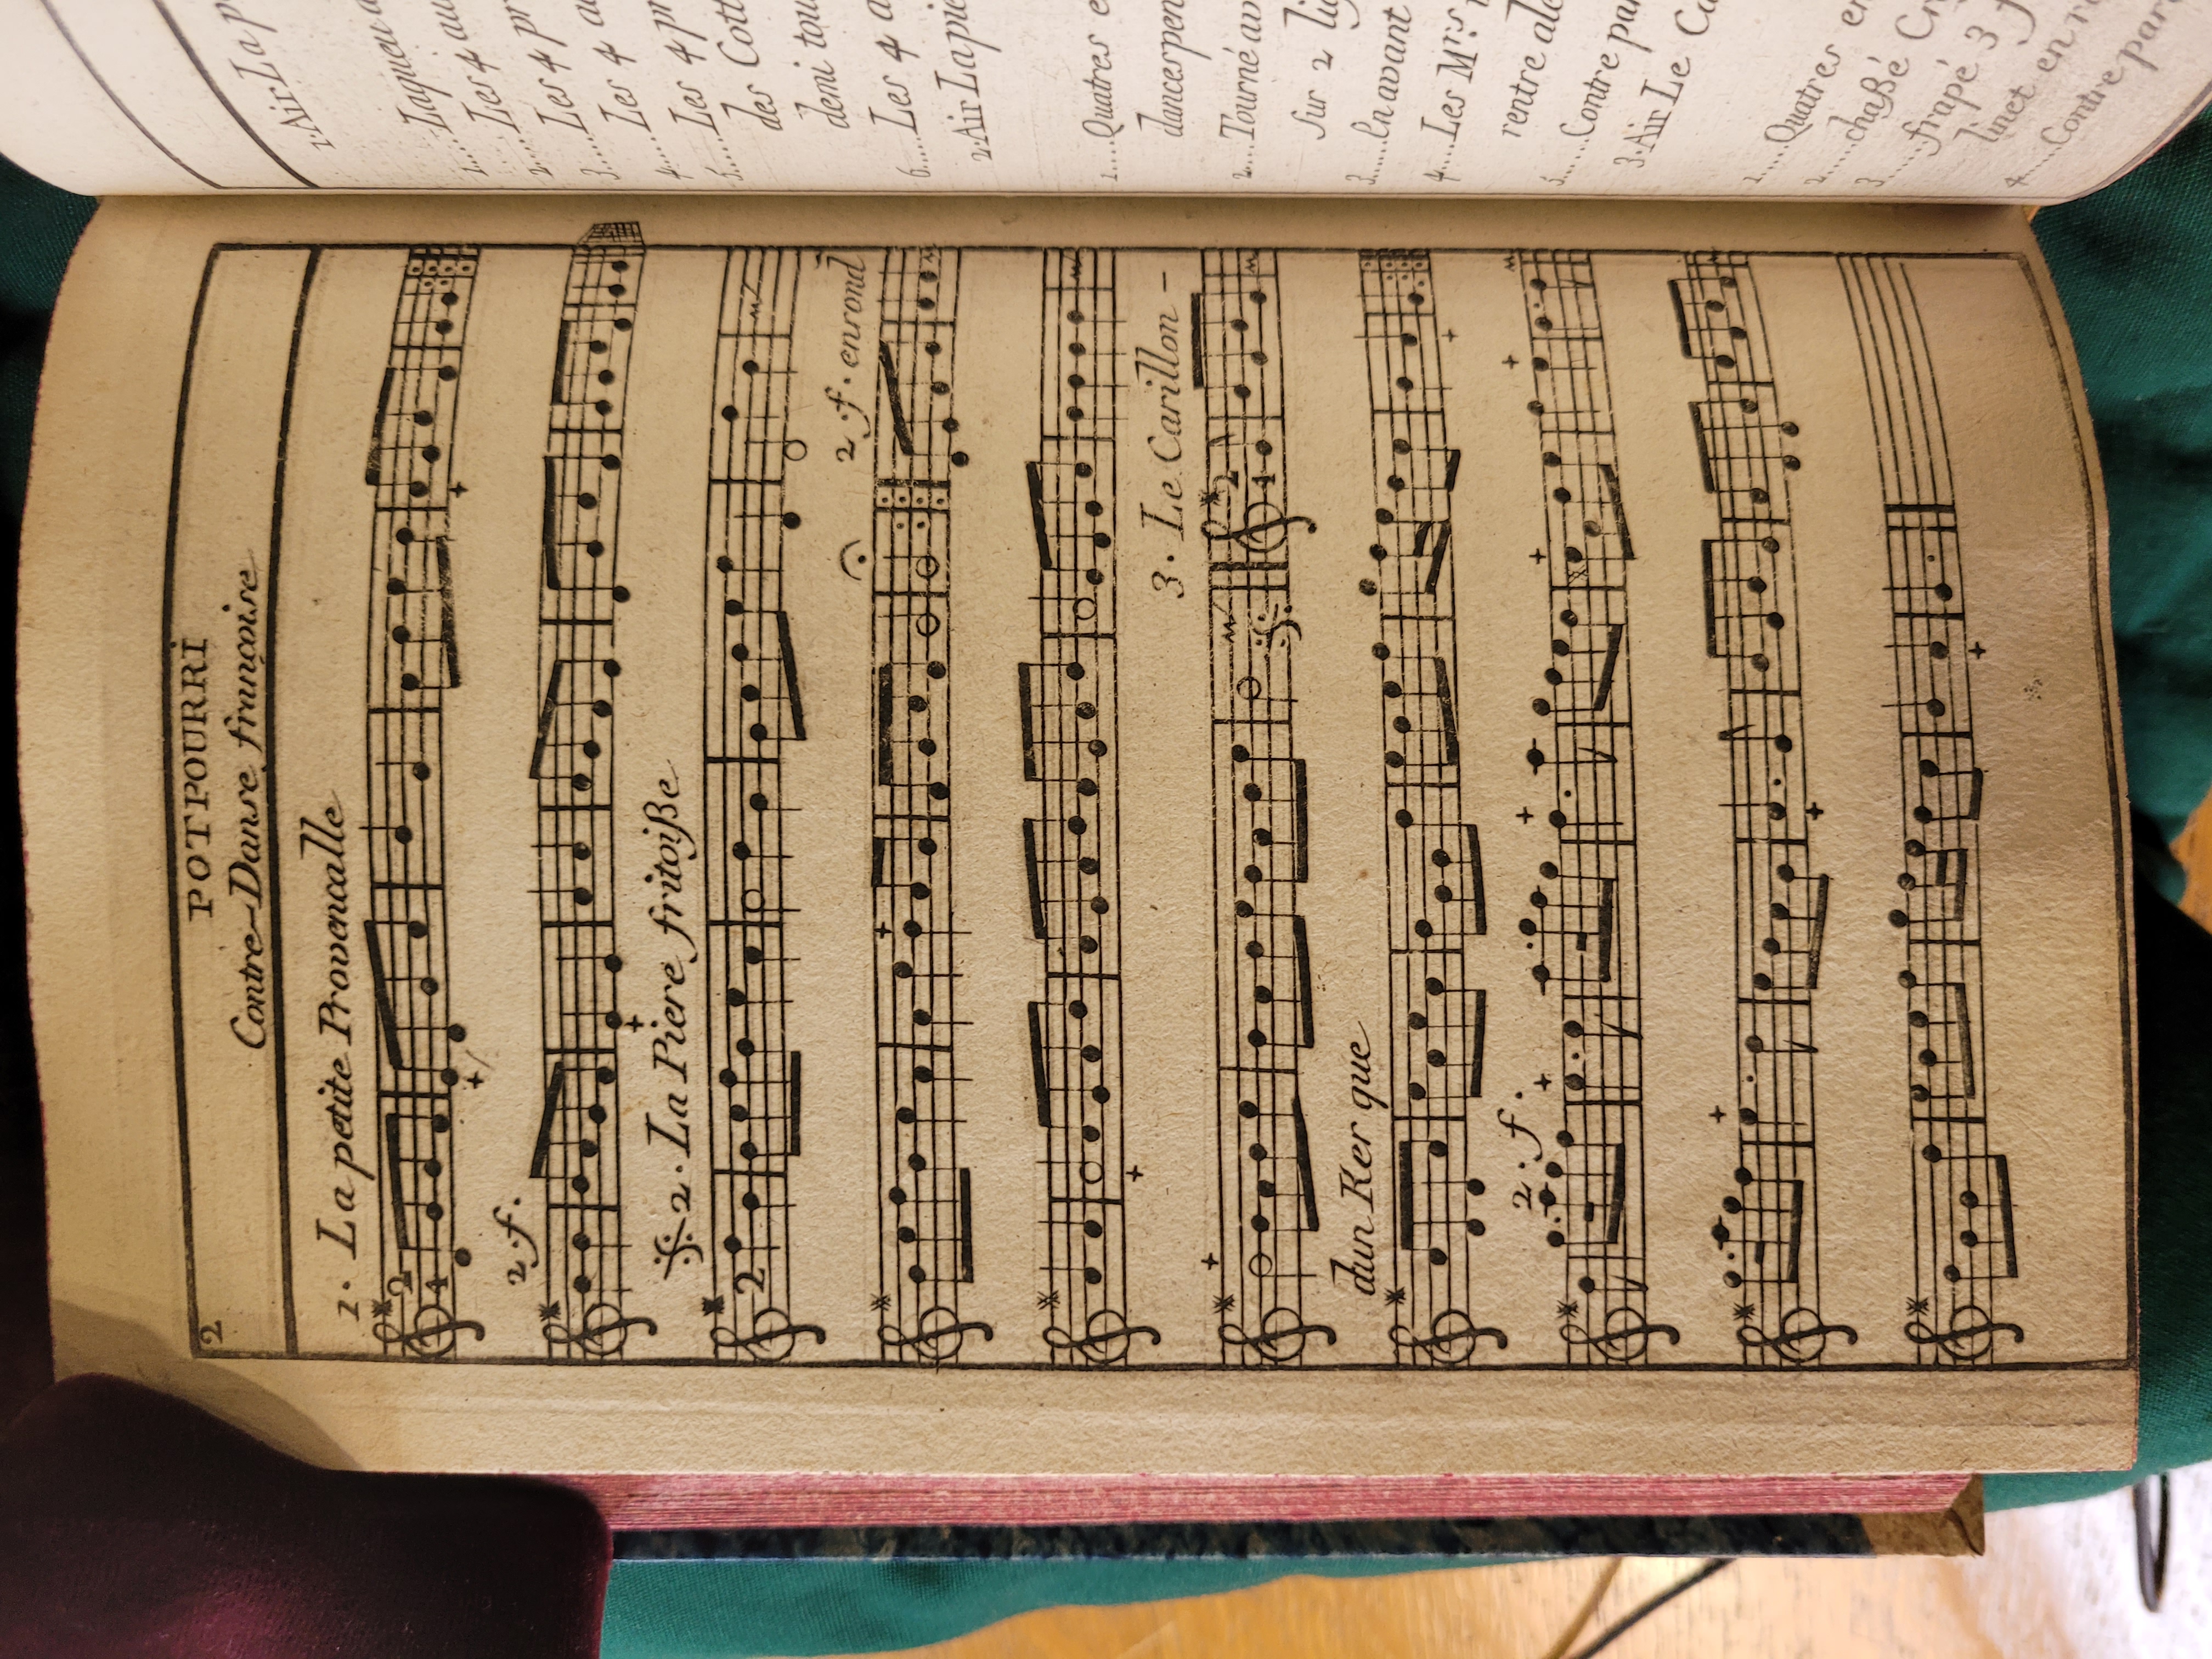 2
POTPOURRI
Contre-Danse francoise
1. La petite Provencalle
2.f.
2. La Piere fritoiße
2.f. enrond
3. Le Carillon -
dun Ker que
2.f.
1. Air La p
1.... Les 4 au
2.... Les 4 pr
3.... Les 4 a
4.... Les 4 pr
5.... des Cott
demi tou
6.... Les 4 a
2. Air La pie
1.... Quatres e
dances pen
2.... Tourné av
sur 2 lig
3.... En avant
4.... Les Mrs.
rentre ale
5.... Contre par
3. Air Le Ca
1.... Quatres en
2.... chaßé Cr
3.... frapé 3 f
linet en r
4.... Contre par